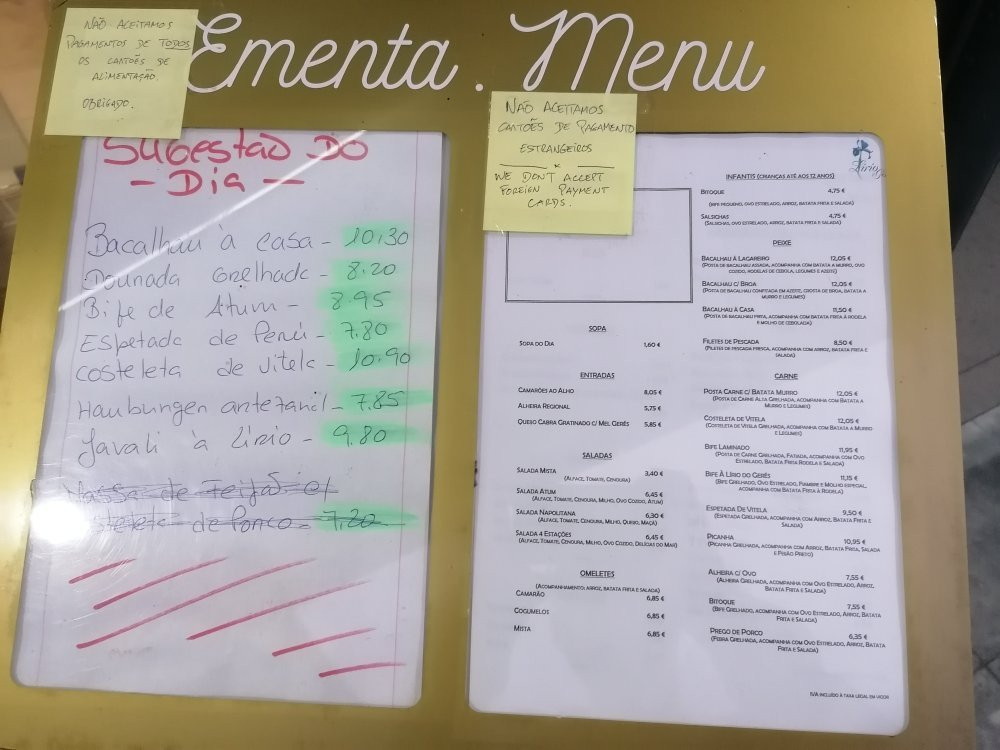 Ementa. Menu
NÃO ACEITAMOS
PAGAMENTOS DE TODOS
OS CARTÕES DE
ALIMENTAÇÃO.
OBRIGADO.
SUGESTÃO DO
- DIA -
Bacalhau à casa - 10,30
Dourada Grelhada - 8.20
Bife de Atum - 8.95
Espetada de Peru - 7.80
costeleta de vitela - 10.90
Hamburgen artezanal - 7.85
Javali à Lírio - 9.80
Massa de Feijão c/
de Porco - 7.20
NÃO ACEITAMOS
CARTÕES DE PAGAMENTO
ESTRANGEIROS
WE DON'T ACCEPT
FOREIGN PAYMENT
CARDS.
SOPA
SOPA DO DIA 1,60 €
ENTRADAS
CAMARÕES AO ALHO 8,05 €
ALHEIRA REGIONAL 5,75 €
QUEIJO CABRA GRATINADO C/ MEL GERÊS 5,85 €
SALADAS
SALADA MISTA 3,40 €
(ALFACE, TOMATE, CENOURA)
SALADA ATUM 6,45 €
(ALFACE, TOMATE, CENOURA, MILHO, OVO COZIDO, ATUM)
SALADA NAPOLITANA 6,30 €
(ALFACE, TOMATE, CENOURA, MILHO, QUEIJO, MAÇÃ)
SALADA 4 ESTAÇÕES 6,45 €
(ALFACE, TOMATE, CENOURA, MILHO, OVO COZIDO, DELÍCIAS DO MAR)
OMELETES
(ACOMPANHAMENTO: ARROZ, BATATA FRITA E SALADA)
CAMARÃO 6,85 €
COGUMELOS 6,85 €
MISTA 6,85 €
Lírio
INFANTIS (CRIANÇAS ATÉ AOS 12 ANOS)
BITOQUE 4,75 €
(BIFE PEQUENO, OVO ESTRELADO, ARROZ, BATATA FRITA E SALADA)
SALSICHAS 4,75 €
(SALSICHAS, OVO ESTRELADO, ARROZ, BATATA FRITA E SALADA)
PEIXE
BACALHAU À LAGAREIRO 12,05 €
(POSTA DE BACALHAU ASSADA, ACOMPANHA COM BATATA A MURRO, OVO
COZIDO, RODELAS DE CEBOLA, LEGUMES E AZEITE)
BACALHAU C/ BROA 12,05 €
(POSTA DE BACALHAU CONFITADA EM AZEITE, CROSTA DE BROA, BATATA A
MURRO E LEGUMES)
BACALHAU À CASA 11,50 €
(POSTA DE BACALHAU FRITA, ACOMPANHA COM BATATA FRITA À RODELA
E MOLHO DE CEBOLADA)
FILETES DE PESCADA 8,50 €
(FILETES DE PESCADA FRESCA, ACOMPANHA COM ARROZ, BATATA FRITA E
SALADA)
CARNE
POSTA CARNE C/ BATATA MURRO 12,05 €
(POSTA DE CARNE ALTA GRELHADA, ACOMPANHA COM BATATA A
MURRO E LEGUMES)
COSTELETA DE VITELA 12,05 €
(COSTELETA DE VITELA GRELHADA, ACOMPANHA COM BATATA A MURRO
E LEGUMES)
BIFE LAMINADO 11,95 €
(POSTA DE CARNE GRELHADA, FATIADA, ACOMPANHA COM OVO
ESTRELADO, BATATA FRITA RODELA E SALADA)
BIFE À LÍRIO DO GERÊS 11,15 €
(BIFE GRELHADO, OVO ESTRELADO, FIAMBRE E MOLHO ESPECIAL,
ACOMPANHA COM BATATA FRITA À RODELA)
ESPETADA DE VITELA 9,50 €
(ESPETADA GRELHADA, ACOMPANHA COM ARROZ, BATATA FRITA E
SALADA)
PICANHA 10,95 €
(PICANHA GRELHADA, ACOMPANHA COM ARROZ, BATATA FRITA, SALADA
E FEIJÃO PRETO)
ALHEIRA C/ OVO 7,55 €
(ALHEIRA GRELHADA, ACOMPANHA COM OVO ESTRELADO, ARROZ,
BATATA FRITA E SALADA)
BITOQUE 7,55 €
(BIFE GRELHADO, ACOMPANHA COM OVO ESTRELADO, ARROZ, BATATA
FRITA E SALADA)
PREGO DE PORCO 6,35 €
(FEBRA GRELHADA, ACOMPANHA COM OVO ESTRELADO, ARROZ, BATATA
FRITA E SALADA)
IVA INCLUÍDO À TAXA LEGAL EM VIGOR